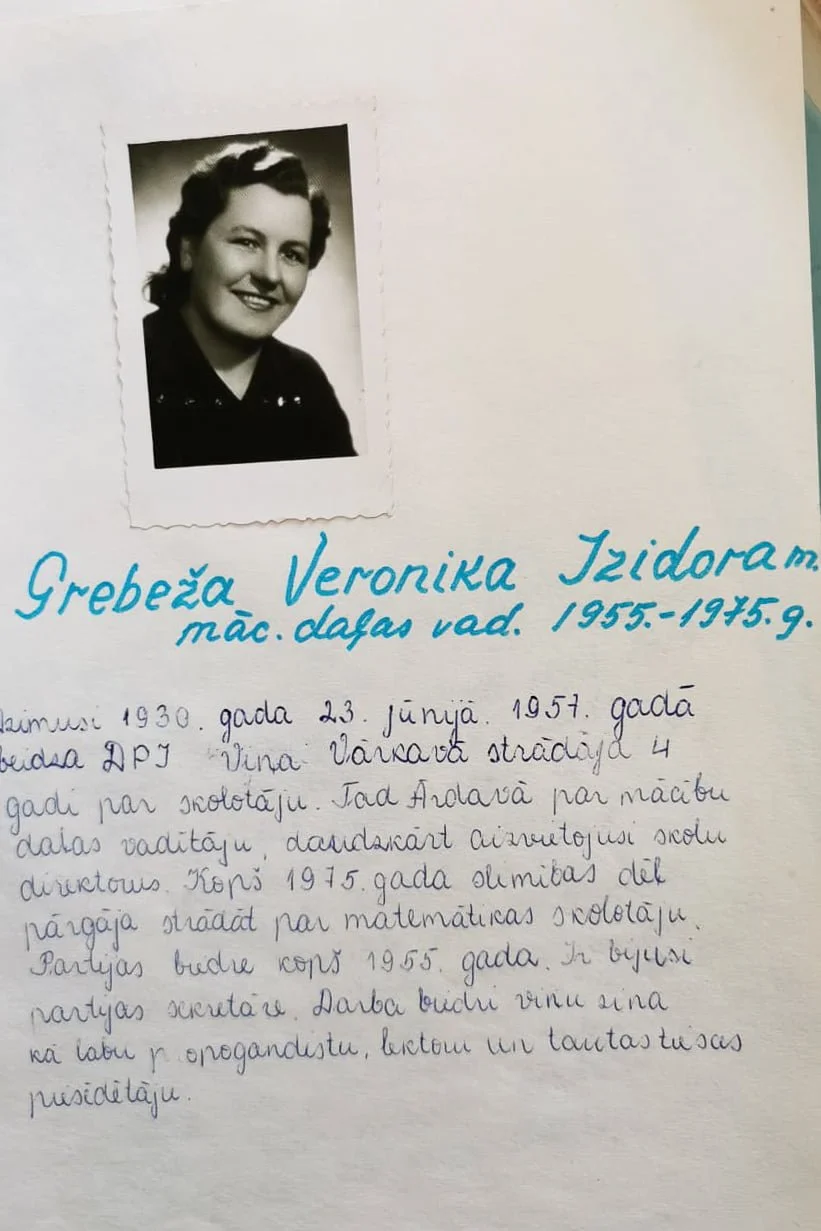 Grebeža Veronika Izidora m.
māc. daļas vad. 1955.-1975. g.
zimusi 1930. gada 23. jūnijā. 1957. gadā
beidza DPI Viņa Vārkavā strādāja 4
gadi par skolotāju. Tad Ārdavā par mācību
daļas vadītāju, daudzkārt aizvietojusi skolu
direktorus. Kopš 1975. gada slimības dēļ
pārgāja strādāt par matemātikas skolotāju.
Partijas biedre kopš 1955. gada. Ir bijusi
partijas sekretāre. Darba biedri viņu zina
kā labu p opogandistu, lektoru un tautas tiesas
piesēdētāju.